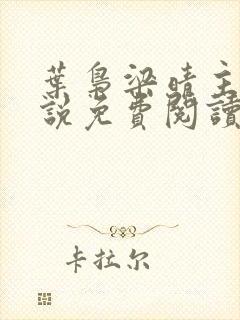 葉梟梁晴主
說免費閱讀
卡拉尔